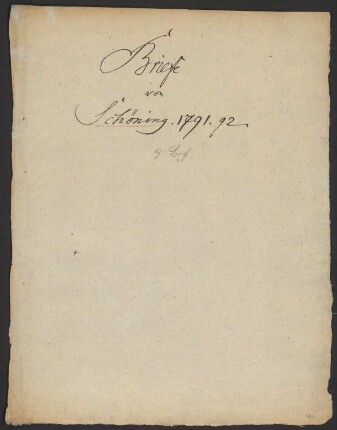 Briefe
von
Schöning. 1791. 92
4